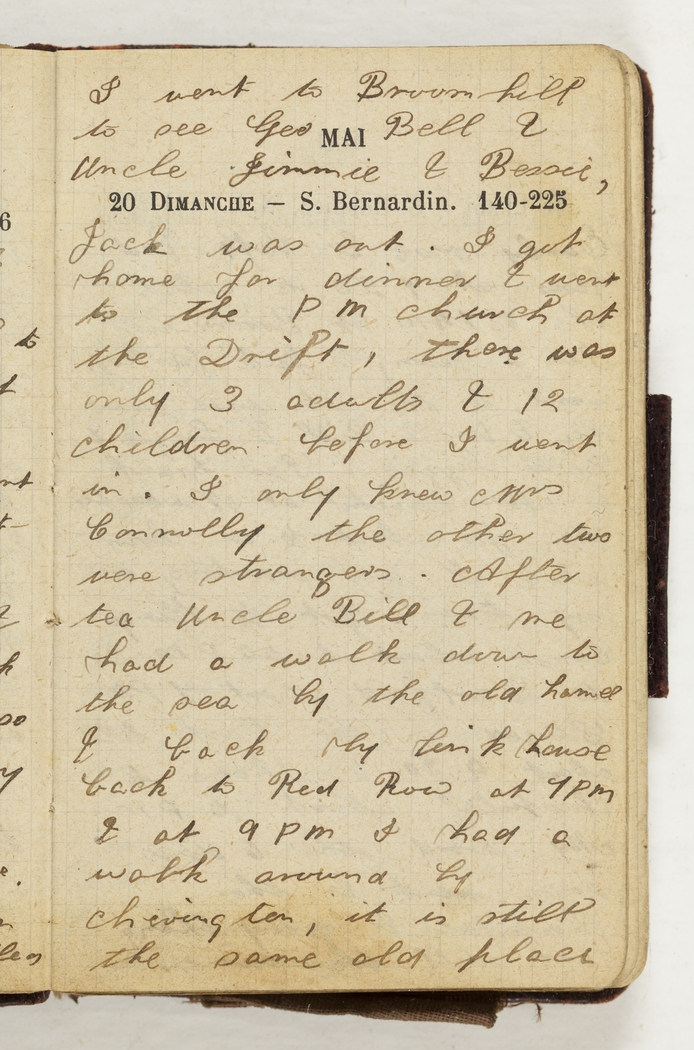 I went to Broomhill
to see Geo Bell &
MAI
Uncle Jimmie & Bessie,
20 DIMANCHE — S. Bernardin. 140-225
Jack was out. I got
home for dinner & went
to the PM church at
the Drift, there was
only 3 adults & 12
children before I went
in. I only knew Mrs
Connolly the other two
were strangers. After
tea Uncle Bill & me
had a walk down to
the sea by the old
& back by link house
back to Red Row at 7PM
& at 9 PM I had a
walk around by
chevington, it is still
the same old place
6
to
t
nt
&
k
so
y
e.
n